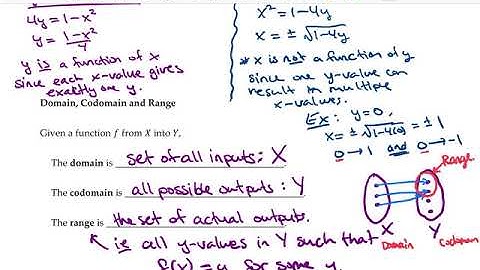 4y = 1-x²
y = 1-x²/4
y is a function of x
since each x-value gives
exactly one y.
x² = 1-4y
x = ± √1-4y
* x is not a function of y
since one y-value can
result in multiple
x-values.
Ex: y=0,
x = ±√1-4(0) = ±1
0→1 and 0→-1
Domain, Codomain and Range
Given a function f from X into Y,
The domain is set of all inputs: X
The codomain is all possible outputs: Y
The range is the set of actual outputs.
ie all y-values in Y such that
f(x) = y for some
Range
X Y
Domain Codomain